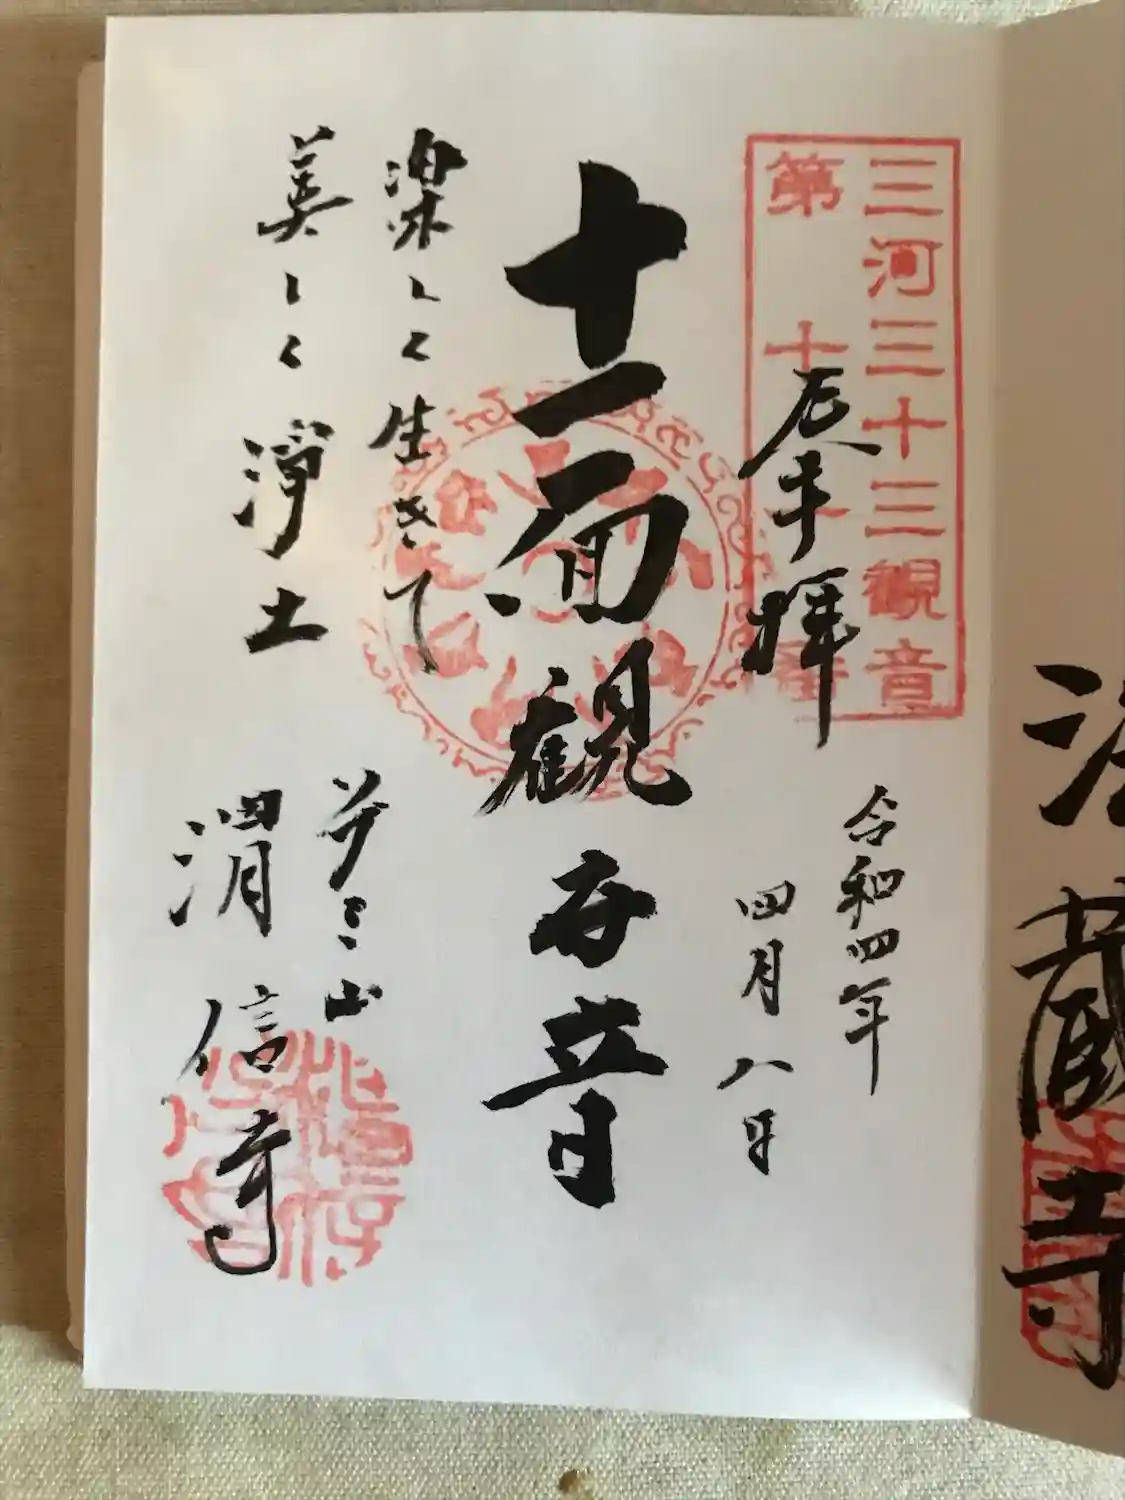 法蔵寺
三河三十三観音
第十
奉拝
令和四年
四月八日
十一面観世音
楽しく生きて
美しく浄土
山
渭信寺